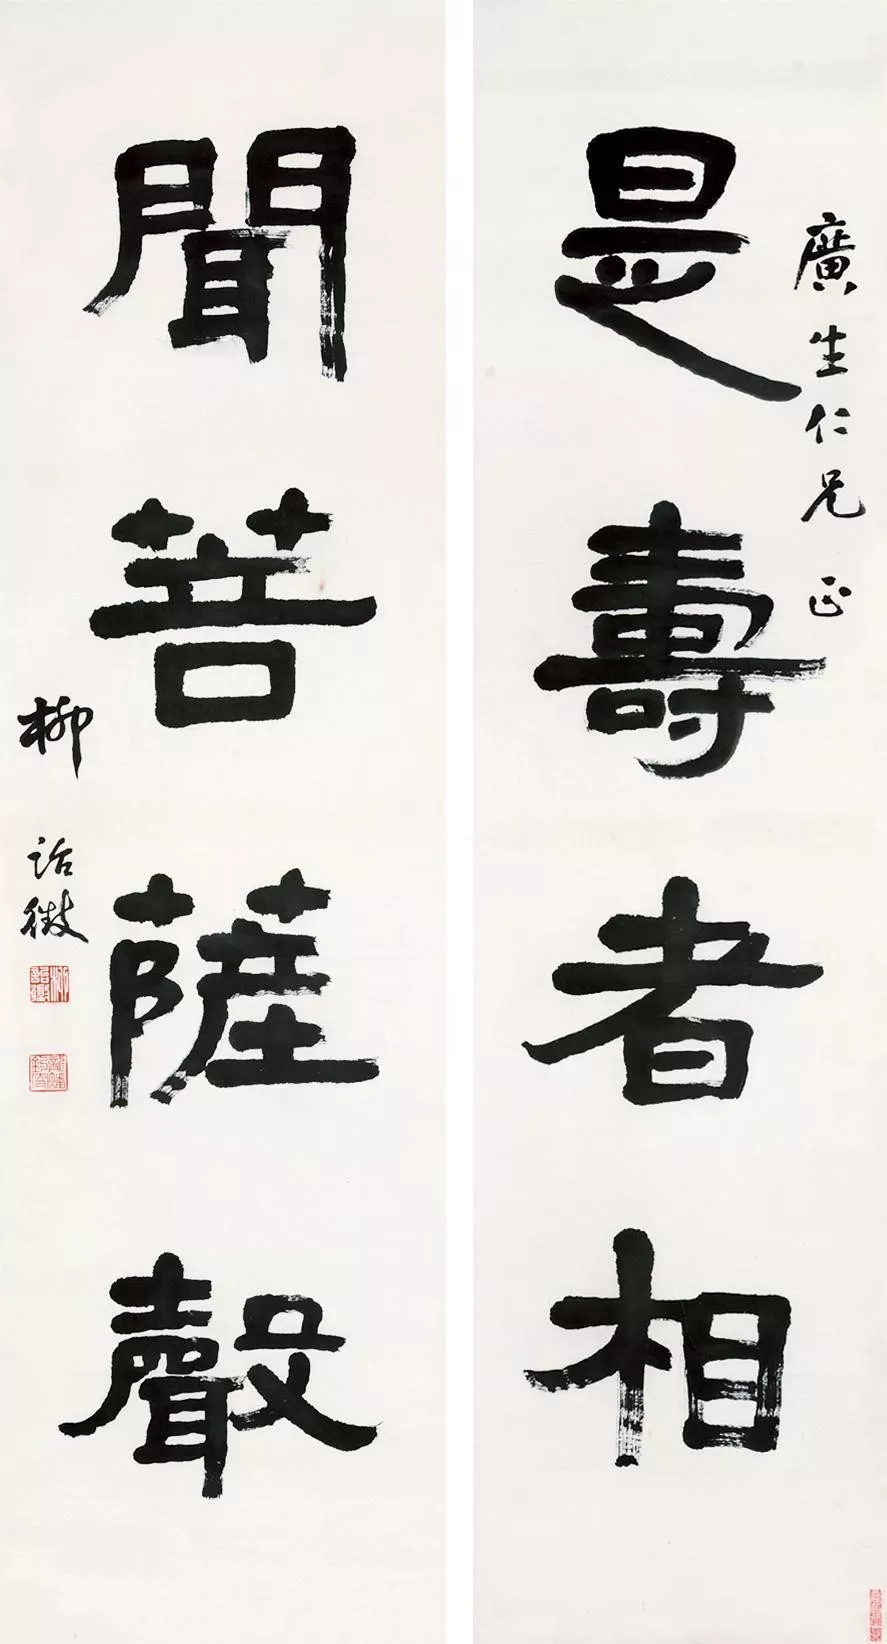 廣生仁兄 正
是壽者相
聞菩薩聲
柳詒徵